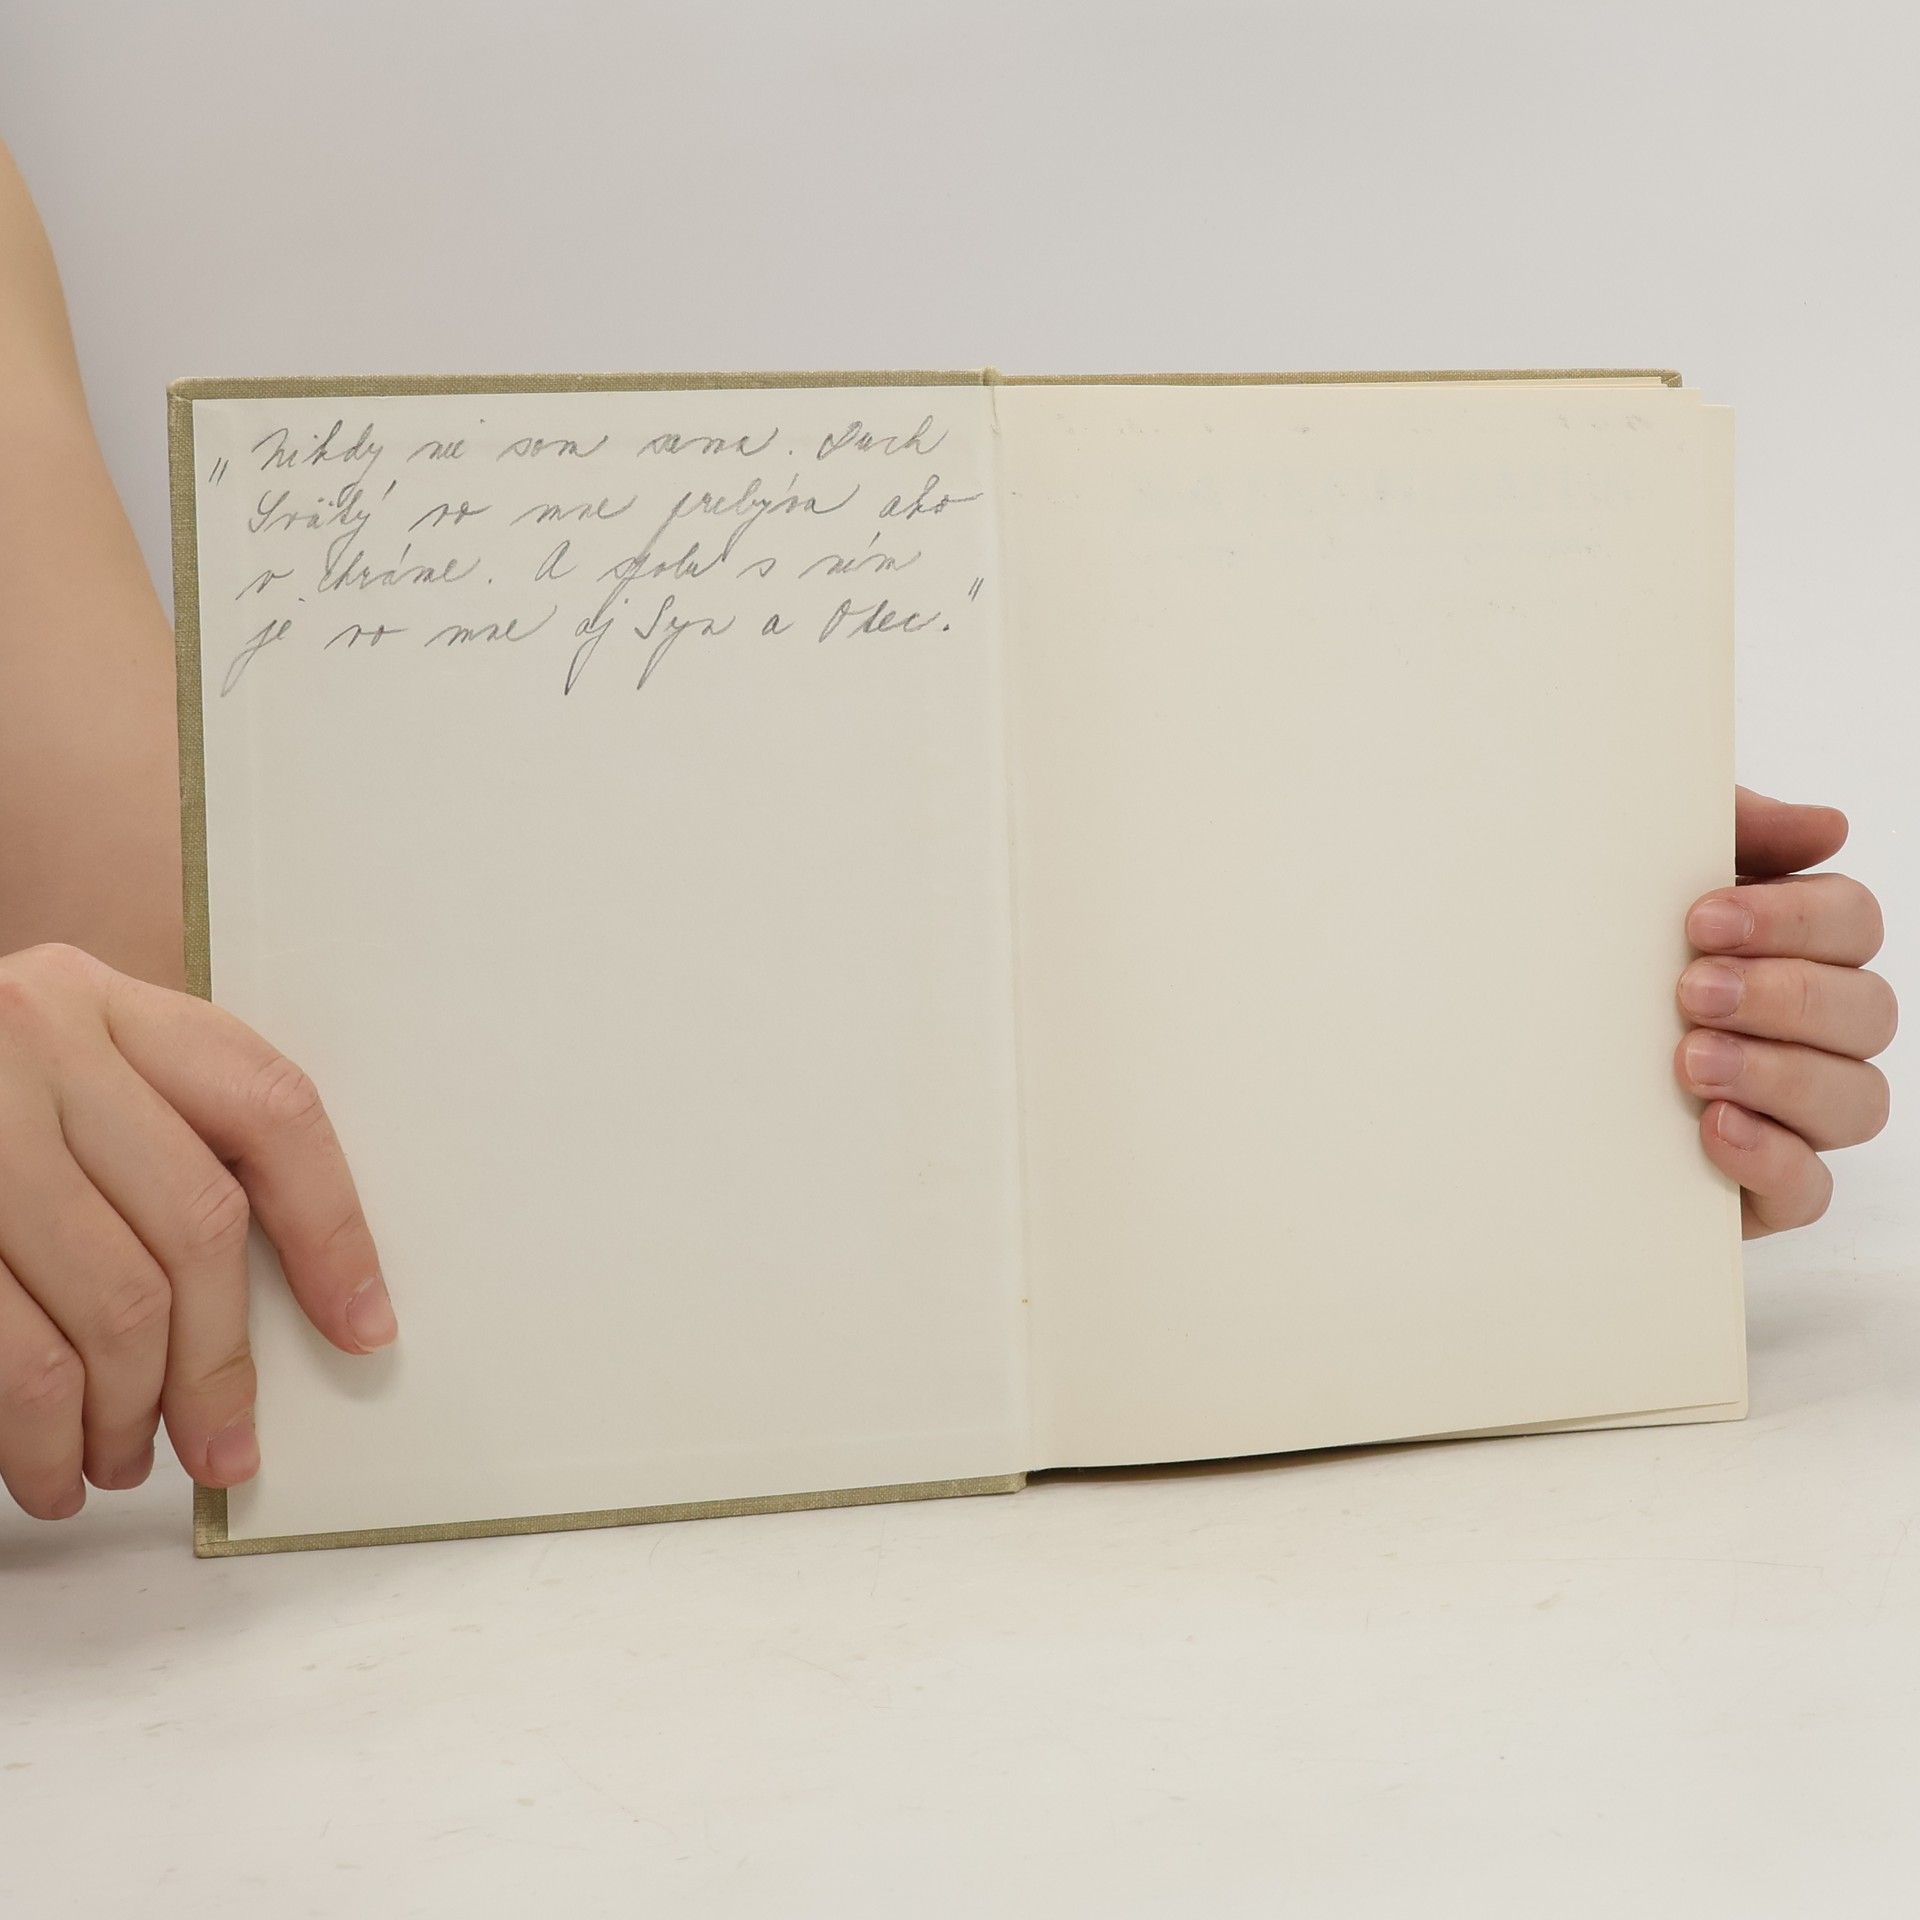 „Nikdy nie som sama. Duch
Svätý vo mne prebýva ako
v chráme. A spolu s ním
je vo mne aj Syn a Otec."